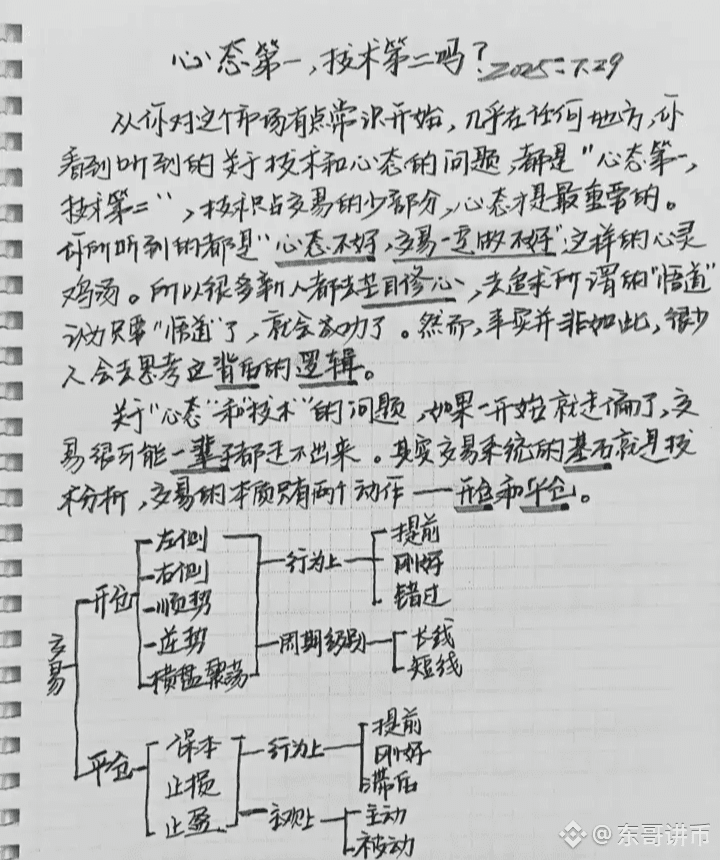 心态第一,技术第二吗?2025.7.29
从你对这个市场有点常识开始,几乎在任何地方,你
看到听到的关于技术和心态的问题,都是“心态第一,
技术第二”,技术只占交易的少部分,心态才是最重要的。
你所听到的都是“心态不好,交易一定做不好”这样的心灵
鸡汤。所以很多新人都去盲目修心,去追求所谓的“悟道”
认为只要“悟道”了,就会成功了。然而,事实并非如此,很少
人会去思考这背后的逻辑。
关于“心态”和“技术”的问题,如果一开始就走偏了,交
易很可能一辈子都走不出来。其实交易系统的基石就是技
术分析,交易的本质只有两个动作——开仓和平仓。
交易
开仓
左侧
右侧
顺势
逆势
横盘震荡
行为上
提前
刚好
错过
周期级别
长线
短线
平仓
保本
止损
止盈
行为上
提前
刚好
滞后
主观上
主动
被动
@东哥讲币